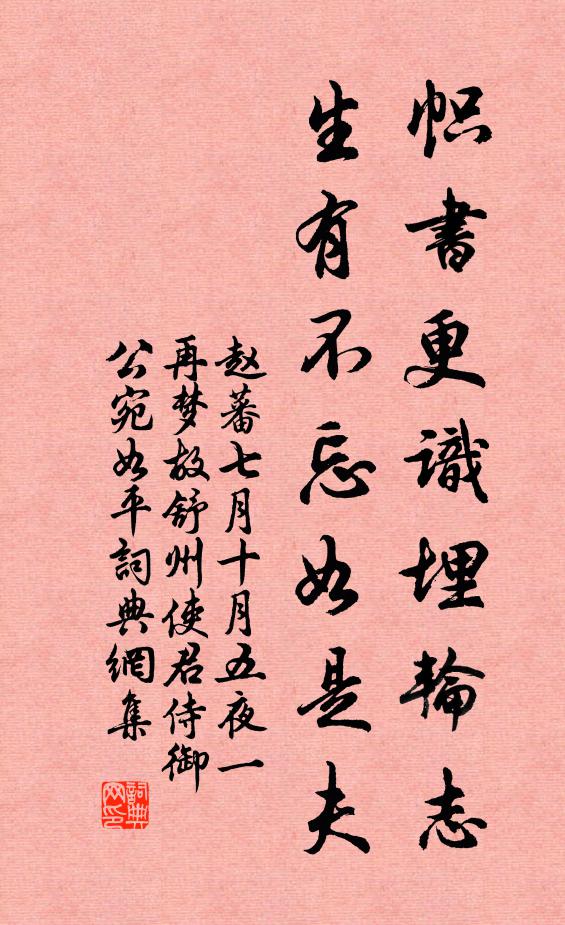 帜書更識埋輪志
生有不忘如是夫
赵蕃七月十月五夜一
再梦故舒州使君侍御
公宛如平詞典網集
詞典
网印